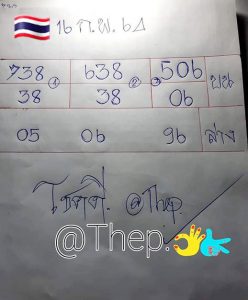 16 ก.พ. 64
738 ① 638 ② ③ 506 บน
38 38 06
05 06 96 ล่าง
โชคดี. @Thep
@Thep.